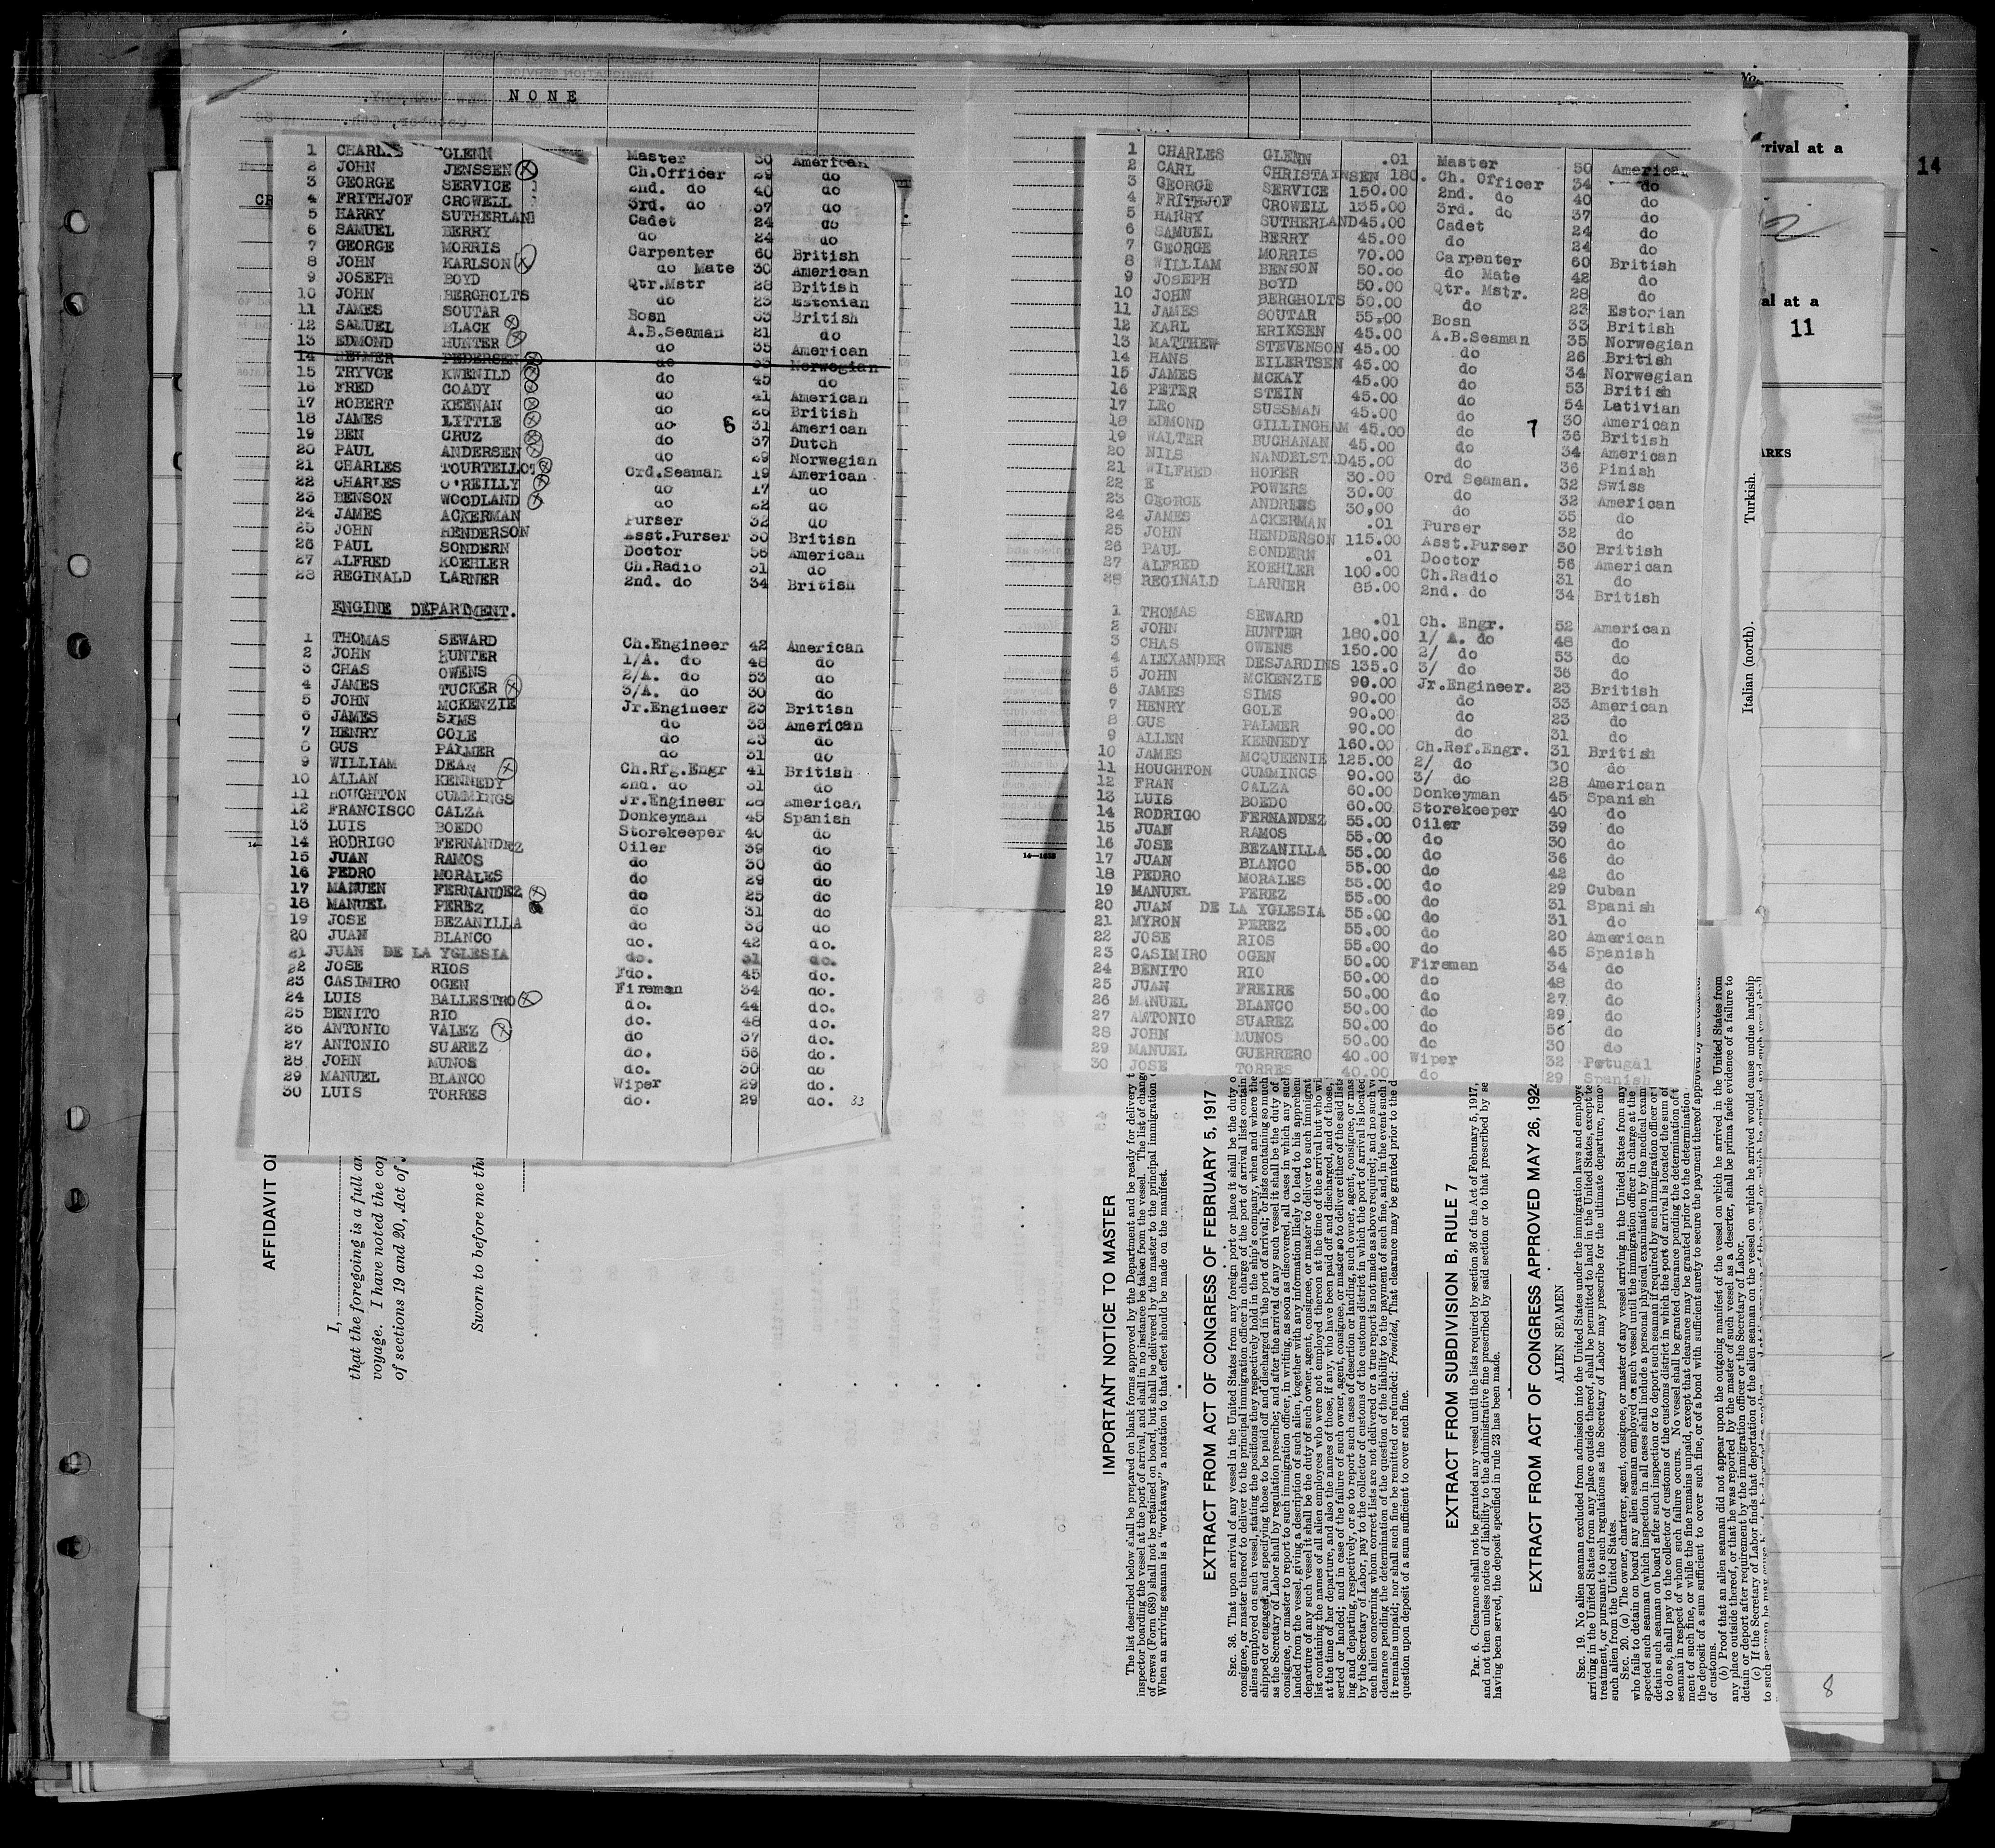 NONE
1 CHARLES GLENN Master 50 American
2 JOHN JENSSEN Ch.Officer 29 do
3 GEORGE SERVICE 2nd. do 40 do
4 FRITHJOF CROWELL 3rd. do 37 do
5 HARRY SUTHERLAND Cadet 24 do
6 SAMUEL BERRY do 24 do
7 GEORGE MORRIS Carpenter 60 British
8 JOHN KARLSON do Mate 30 American
9 JOSEPH BOYD Qtr.Mstr 28 British
10 JOHN BERGHOLTS do 23 Estonian
11 JAMES SOUTAR Bosn 33 British
12 SAMUEL BLACK A.B.Seaman 21 do
13 EDMOND HUNTER do 35 American
14 HELMER PEDERSEN do 33 Norwegian
15 TRYVGE KWENILD do 45 do
16 FRED COADY do 41 American
17 ROBERT KEENAN do 26 British
18 JAMES LITTLE do 31 American
19 BEN CRUZ do 37 Dutch
20 PAUL ANDERSEN do 29 Norwegian
21 CHARLES TOURTELLOT Ord.Seaman 19 American
22 CHARLES O'REILLY do 17 do
23 BENSON WOODLAND do 22 do
24 JAMES ACKERMAN Purser 32 do
25 JOHN HENDERSON Asst.Purser 30 British
26 PAUL SONDERN Doctor 56 American
27 ALFRED KOEHLER Ch.Radio 31 do
28 REGINALD LARNER 2nd. do 34 British
6
ENGINE DEPARTMENT.
1 THOMAS SEWARD Ch.Engineer 42 American
2 JOHN HUNTER 1/A. do 48 do
3 CHAS OWENS 2/A. do 53 do
4 JAMES TUCKER 3/A. do 30 do
5 JOHN MCKENZIE Jr.Engineer 23 British
6 JAMES SIMS do 33 American
7 HENRY COLE do 23 do
8 GUS PALMER do 31 do
9 WILLIAM DEAN Ch.Rfg.Engr 41 British
10 ALLAN KENNEDY 2nd. do 31 do
11 HOUGHTON CUMMINGS Jr.Engineer 28 American
12 FRANCISCO CALZA Donkeyman 45 Spanish
13 LUIS BOEDO Storekeeper 40 do
14 RODRIGO FERNANDEZ Oiler 39 do
15 JUAN RAMOS do 30 do
16 PEDRO MORALES do 29 do
17 MANUEN FERNANDEZ do 25 do
18 MANUEL PEREZ do 31 do
19 JOSE BEZANILLA do 36 do
20 JUAN BLANCO do. 42 do.
21 JUAN DE LA YGLESIA do. 31 do.
22 JOSE RIOS do. 45 do.
23 CASIMIRO OGEN Fireman 34 do.
24 LUIS BALLESTRO do. 44 do.
25 BENITO RIO do. 48 do.
26 ANTONIO VALEZ do 37 do.
27 ANTONIO SUAREZ do. 56 do.
28 JOHN MUNOS do. 30 do
29 MANUEL BLANCO Wiper 29 do.
30 LUIS TORRES do. 29 do. 33
1 CHARLES GLENN .01 Master 50 American
2 CARL CHRISTAINSEN 180. Ch. Officer 34 do
3 GEORGE SERVICE 150.00 2nd. do 40 do
4 FRITHJOF CROWELL 135.00 3rd. do 37 do
5 HARRY SUTHERLAND 45.00 Cadet 24 do
6 SAMUEL BERRY 45.00 do 24 do
7 GEORGE MORRIS 70.00 Carpenter 60 British
8 WILLIAM BENSON 50.00 do Mate 42 do
9 JOSEPH BOYD 50.00 Qtr. Mstr. 28 do
10 JOHN BERGHOLTS 50.00 do 23 Estorian
11 JAMES SOUTAR 55,00 Bosn 33 British
12 KARL ERIKSEN 45.00 A.B.Seaman 35 Norwegian
13 MATTHEW STEVENSON 45.00 do 26 British
14 HANS EILERTSEN 45.00 do 34 Norwegian
15 JAMES MCKAY 45.00 do 53 British
16 PETER STEIN 45.00 do 54 Lativian
17 LEO SUSSMAN 45.00 do 30 American
18 EDMOND GILLINGHAM 45.00 do 36 British
19 WALTER BUCHANAN 45.00 do 34 American
20 NILS NANDELSTAD 45.00 do 36 Finish
21 WILFRED HOFER 30.00 Ord Seaman. 32 Swiss
22 E POWERS 30.00 do 32 American
23 GEORGE ANDREWS 30,00 do 35 do
24 JAMES ACKERMAN .01 Purser 32 do
25 JOHN HENDERSON 115.00 Asst.Purser 30 British
26 PAUL SONDERN .01 Doctor 56 American
27 ALFRED KOEHLER 100.00 Ch.Radio 31 do
28 REGINALD LARNER 85.00 2nd. do 34 British
7
1 THOMAS SEWARD .01 Ch. Engr. 52 American
2 JOHN HUNTER 180.00 1/ A. do 48 do
3 CHAS OWENS 150.00 2/ do 53 do
4 ALEXANDER DESJARDINS 135.0 3/ do 36 do
5 JOHN MCKENZIE 90.00 Jr.Engineer. 23 British
6 JAMES SIMS 90.00 do 33 American
7 HENRY GOLE 90.00 do 23 do
8 GUS PALMER 90.00 do 31 do
9 ALLEN KENNEDY 160.00 Ch.Ref.Engr. 31 British
10 JAMES MCQUEENIE 125.00 2/ do 30 do
11 HOUGHTON CUMMINGS 90.00 3/ do 28 American
12 FRAN CALZA 60.00 Donkeyman 45 Spanish
13 LUIS BOEDO 60.00 Storekeeper 40 do
14 RODRIGO FERNANDEZ 55.00 Oiler 39 do
15 JUAN RAMOS 55.00 do 30 do
16 JOSE BEZANILLA 55.00 do 36 do
17 JUAN BLANCO 55.00 do 42 do
18 PEDRO MORALES 55.00 do 29 Cuban
19 MANUEL PEREZ 55.00 do 31 Spanish
20 JUAN DE LA YGLESIA 55.00 do 31 do
21 MYRON PEREZ 55.00 do 20 American
22 JOSE RIOS 55.00 do 45 Spanish
23 CASIMIRO OGEN 50.00 Fireman 34 do
24 BENITO RIO 50.00 do 48 do
25 JUAN FREIRE 50.00 do 27 do
26 MANUEL BLANCO 50.00 do 29 do
27 ANTONIO SUAREZ 50.00 do 56 do
28 JOHN MUNOS 50.00 do 30 do
29 MANUEL GUERRERO 40.00 Wiper 32 Potugal
30 JOSE TORRES 40.00 do 29 Spanish
14—1613
No.
rrival at a
14
al at a
11
ARKS
Turkish.
Italian (north).
8
AFFIDAVIT OF
I,
that the foregoing is a full an
voyage. I have noted the cop
of sections 19 and 20, Act of
Sworn to before me thi
IMPORTANT NOTICE TO MASTER
The list described below shall be prepared on blank forms approved by the Department and be ready for delivery t
inspector boarding the vessel at the port of arrival, and shall in no instance be taken from the vessel. The list of change
of crews (Form 689) shall not be retained on board, but shall be delivered by the master to the principal immigration
When an arriving seaman is a "workaway" a notation to that effect should be made on the manifest.
EXTRACT FROM ACT OF CONGRESS OF FEBRUARY 5, 1917
SEC. 36. That upon arrival of any vessel in the United States from any foreign port or place it shall be the duty o
consignee, or master thereof to deliver to the principal immigration officer in charge of the port of arrival lists contain
aliens employed on such vessel, stating the positions they respectively hold in the ship's company, when and where the
shipped or engaged, and specifying those to be paid off and discharged in the port of arrival; or lists containing so much
as the Secretary of Labor shall by regulation prescribe; and after the arrival of any such vessel it shall be the duty of
consignee, or master to report to such immigration officer, in writing, as soon as discovered, all cases in which any such
landed from the vessel, giving a description of such alien, together with any information likely to lead to his apprehen
departure of any such vessel it shall be the duty of such owner, agent, consignee, or master to deliver to such immigrat
list containing the names of all alien employees who were not employed thereon at the time of the arrival but who wi
at the time of her departure, and also the names of those, if any, who have been paid off and discharged, and of those,
serted or landed; and in case of the failure of such owner, agent, consignee, or master so to deliver either of the said lists
ing and departing, respectively, or so to report such cases of desertion or landing, such owner, agent, consignee, or mas
by the Secretary of Labor, pay to the collector of customs of the customs district in which the port of arrival is located
each alien concerning whom correct lists are not delivered or a true report is not made as above required; and no such v
clearance pending the determination of the question of the liability to the payment of such fine, and, in the event such
it remains unpaid; nor shall such fine be remitted or refunded: Provided, That clearance may be granted prior to the d
question upon deposit of a sum sufficient to cover such fine.
EXTRACT FROM SUBDIVISION B, RULE 7
Par. 6. Clearance shall not be granted any vessel until the lists required by section 36 of the Act of February 5, 1917,
and not then unless notice of liability to the administrative fine prescribed by said section or to that prescribed by se
having been served, the deposit specified in rule 23 has been made.
EXTRACT FROM ACT OF CONGRESS APPROVED MAY 26, 1924
ALIEN SEAMEN
SEC. 19. No alien seaman excluded from admission into the United States under the immigration laws and employe
arriving in the United States from any place outside thereof, shall be permitted to land in the United States, except te
treatment, or pursuant to such regulations as the Secretary of Labor may prescribe for the ultimate departure, remo
such alien from the United States.
SEC. 20. (a) The owner, charterer, agent, consignee, or master of any vessel arriving in the United States from any
who fails to detain on board any alien seaman employed on such vessel until the immigration officer in charge at the
spected such seaman (which inspection in all cases shall include a personal physical examination by the medical exam
detain such seaman on board after such inspection or to deport such seaman if required by such immigration officer or
to do so, shall pay to the collector of customs of the customs district in which the port of arrival is located the sum of
seaman in respect of whom such failure occurs. No vessel shall be granted clearance pending the determination of t
ment of such fine, or while the fine remains unpaid, except that clearance may be granted prior to the determination
the deposit of a sum sufficient to cover such fine, or of a bond with sufficient surety to secure the payment thereof approved by the collector
of customs.
(b) Proof that an alien seaman did not appear upon the outgoing manifest of the vessel on which he arrived in the United States from
any place outside thereof, or that he was reported by the master of such vessel as a deserter, shall be prima facie evidence of a failure to
detain or deport after requirement by the immigration officer or the Secretary of Labor.
(c) If the Secretary of Labor finds that deportation of the alien seaman on the vessel on which he arrived would cause undue hardship